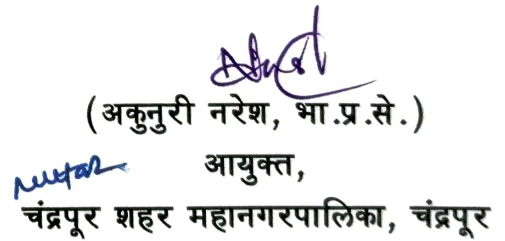 (अकुनुरी नरेश, भा.प्र.से.)
आयुक्त,
चंद्रपूर शहर महानगरपालिका, चंद्रपूर